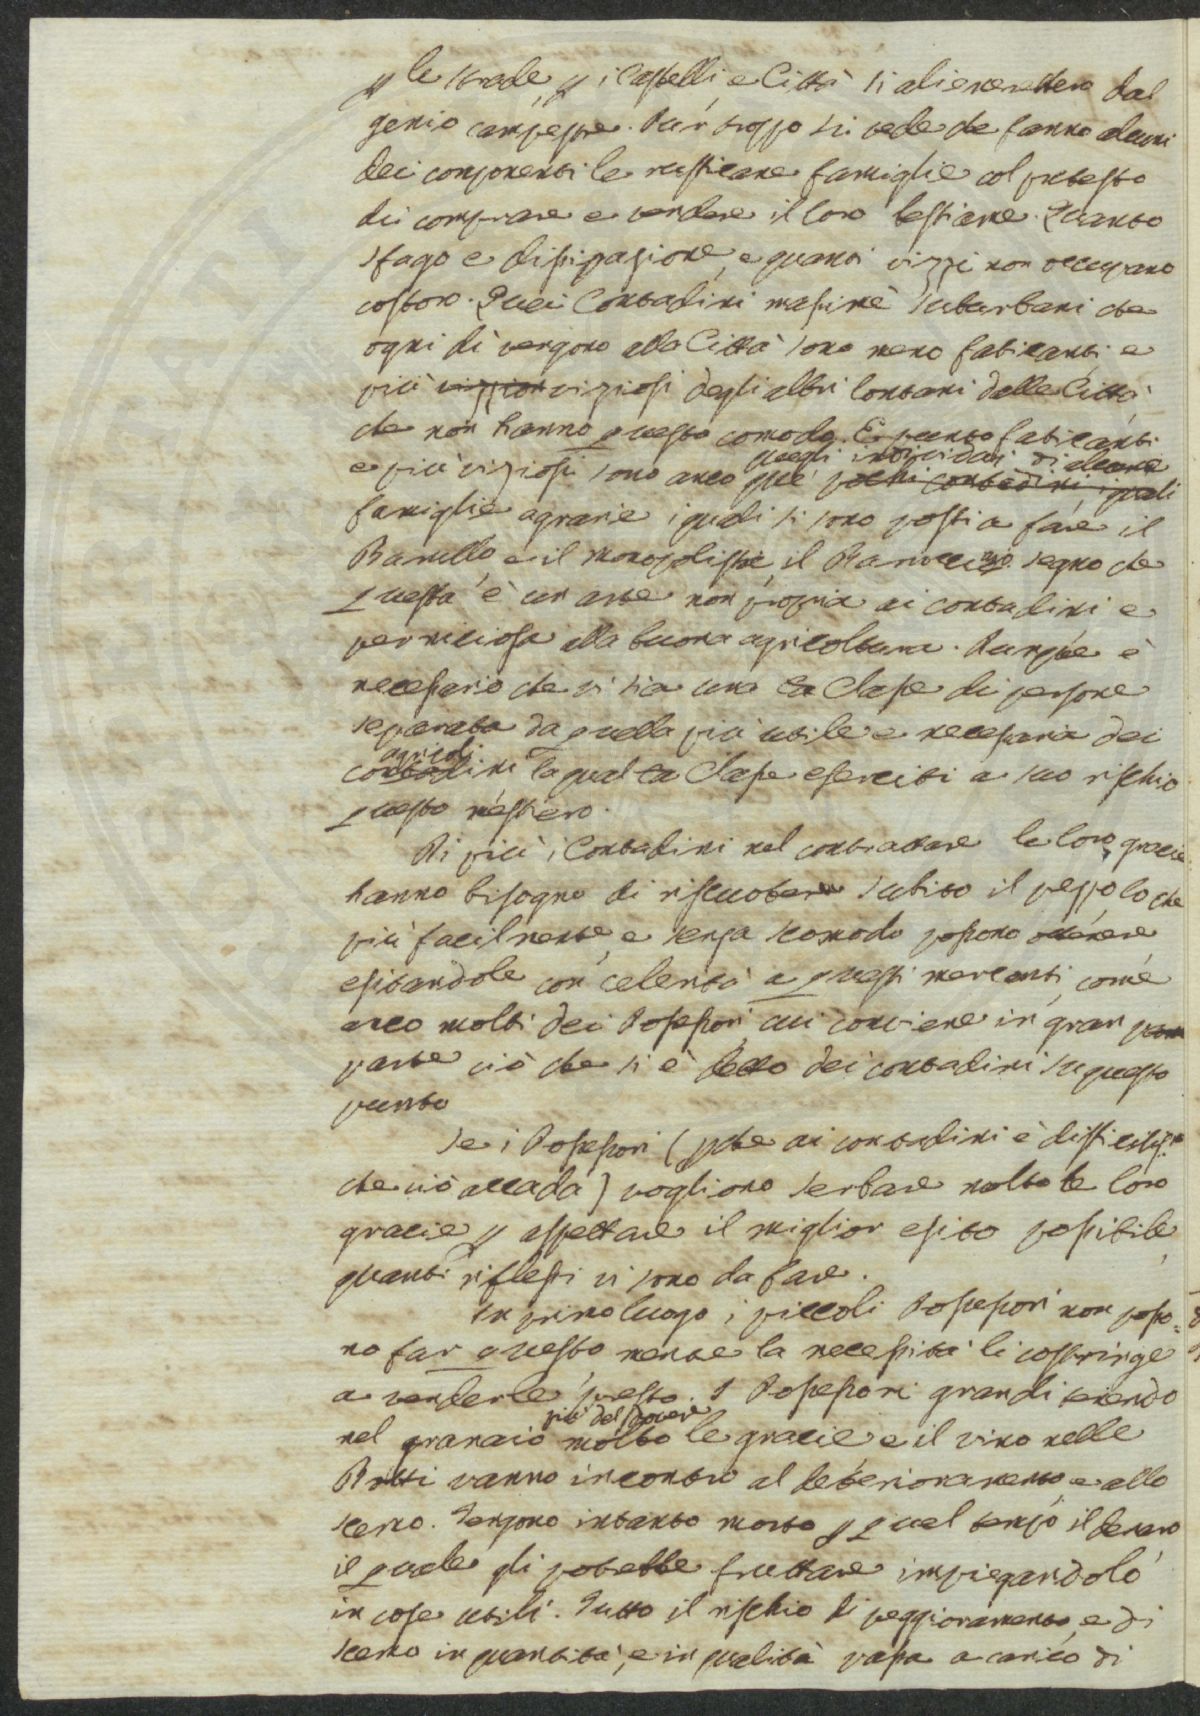 p le strade, p i Castelli e Città si alienerebbero dal
genio campestre. Pur troppo si vede che fanno alcuni
dei componenti le rusticane famiglie col pretesto
di comprare e vendere il loro bestiame. Quanto
sfago e dissipazione, e quanti vizzi non occupano
costoro. Quei Contadini massime suburbani che
ogni dì vengono alla Città sono meno faticanti, e
più viziosi degli altri lontani dalle Città
che non hanno questo comodo. E faticanti
e più viziosi sono anco quegli individui di alcune
que' pochi contadini quali
famiglie agrarie i quali si sono posti a fare il
Barullo e il monopolista, il Barroccino segno che
questa è un arte non propria ai contadini e
perniciosa alla buona agricoltura. Dunque è
necessario che vi sia una ta Classe di persone
separata da quella più utile e necessaria dei
agricoli
contadini la qual ta Classe eserciti a suo rischio
questo mestiero.
Di più i Contadini nel contrattare le loro gracie
hanno bisogno di riscuotere subito il prezzo lo che
più facilmente, e senza scomodo possono ottenere
esitandole con celerità a questi mercanti, come
anco molti dei Possessori, cui conviene in gran
parte ciò che si è detto dei contadini su questo
punto
Se i Possessori (pche ai contadini è difficiliss.mo
che ciò accada) vogliono serbare molto le loro
gracie p aspettare il miglior esito possibile,
quanti riflessi vi sono da fare.
In primo luogo i piccoli Possessori non posso=
no far questo mentre la necessità li costringe
a venderle presto. I Possessori grandi tenendo
più del dovere
nel granaio molto le gracie e il vino nelle
Botti vanno incontro al deterioramento, e allo
scemo. Tengono intanto morto p quel tempo il denaro
il quale gli potrebbe fruttare impiegandolo
in cose utili. Tutto il rischio di peggioramento, e di
scemo in quantità, e in qualità passa a carico di